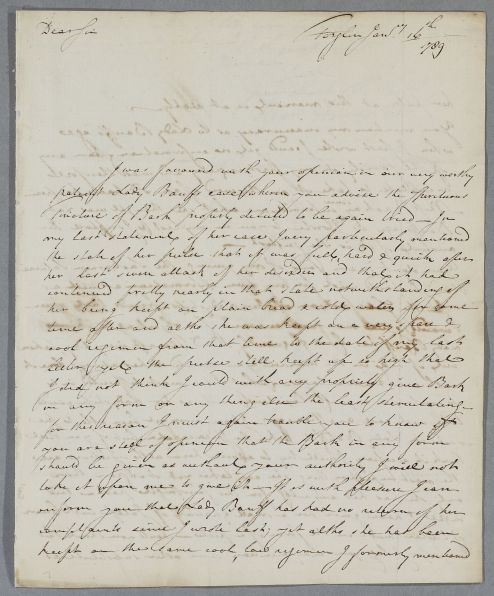 Dear Sir
Forglen Janry 16th
1789
I was favoured with your opinion in our very worthy
patient Lady Banffs case where you advise the Spiritous
Tincture of Bark properly diluted to be again tried — In
my last statement of her case I very particularly mentioned
the state of her pulse that it was full, hard & quick after
her last severe attack of her disorder and that it had
continued pretty nearly in that state notwithstanding of
her being keept on plain bread & cold water for some
time after and altho she was keept on a very spare &
cool regimen from that time to the date of my last
letter yet the pulse still keept up so high that
I did not think I could with any propriety give Bark
in any form or any thing else the least stimulating —
for this reason I must again trouble you to know if
you are still of opinion that the Bark in any form
should be given as without your authority I will not
take it upon me to give it — It is with pleasure I can
inform you that Lady Banff has had no return of her
complaints since I wrote last; yet altho she has been
keept on the same cool, low regimen I formerly mentioned